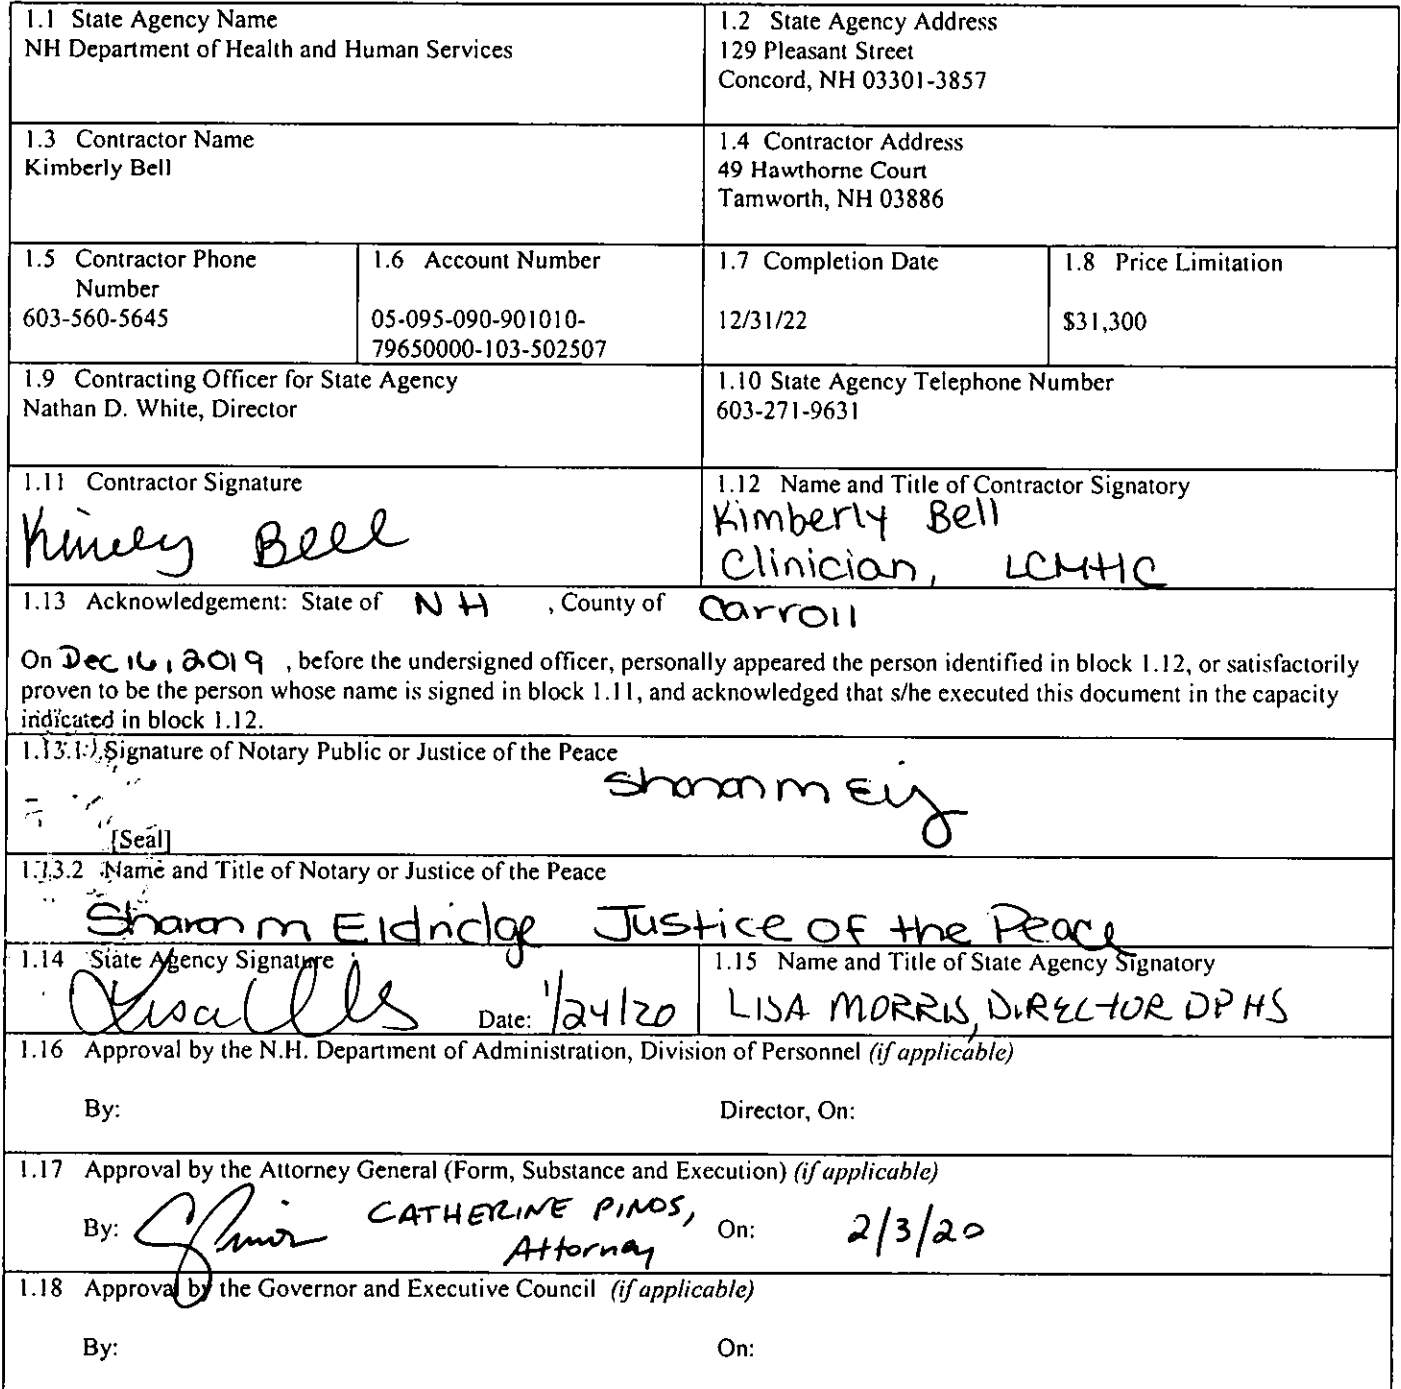 1.1 State Agency Name
NH Department of Health and Human Services
1.2 State Agency Address
129 Pleasant Street
Concord, NH 03301-3857
1.3 Contractor Name
Kimberly Bell
1.4 Contractor Address
49 Hawthorne Court
Tamworth, NH 03886
1.5 Contractor Phone
Number
603-560-5645
1.6 Account Number
05-095-090-901010-
79650000-103-502507
1.7 Completion Date
12/31/22
1.8 Price Limitation
$31,300
1.9 Contracting Officer for State Agency
Nathan D. White, Director
1.10 State Agency Telephone Number
603-271-9631
1.11 Contractor Signature
Bell
1.12 Name and Title of Contractor Signatory
Kimberly Bell
Clinician, LCMHC
1.13 Acknowledgement: State of NH , County of Carroll
On Dec 16, 2019 , before the undersigned officer, personally appeared the person identified in block 1.12, or satisfactorily
proven to be the person whose name is signed in block 1.11, and acknowledged that s/he executed this document in the capacity
indicated in block 1.12.
1.13.1 Signature of Notary Public or Justice of the Peace
Sharon m
[Seal]
1.13.2 Name and Title of Notary or Justice of the Peace
Sharon m Eldridge Justice of the Peace
1.14 State Agency Signature
Lisa
Date: 1/24/20
1.15 Name and Title of State Agency Signatory
LISA MORRIS, DIRECTOR DPHS
1.16 Approval by the N.H. Department of Administration, Division of Personnel (if applicable)
By: Director, On:
1.17 Approval by the Attorney General (Form, Substance and Execution) (if applicable)
By: CATHERINE PINOS, On: 2/3/20
Attorney
1.18 Approval by the Governor and Executive Council (if applicable)
By: On: